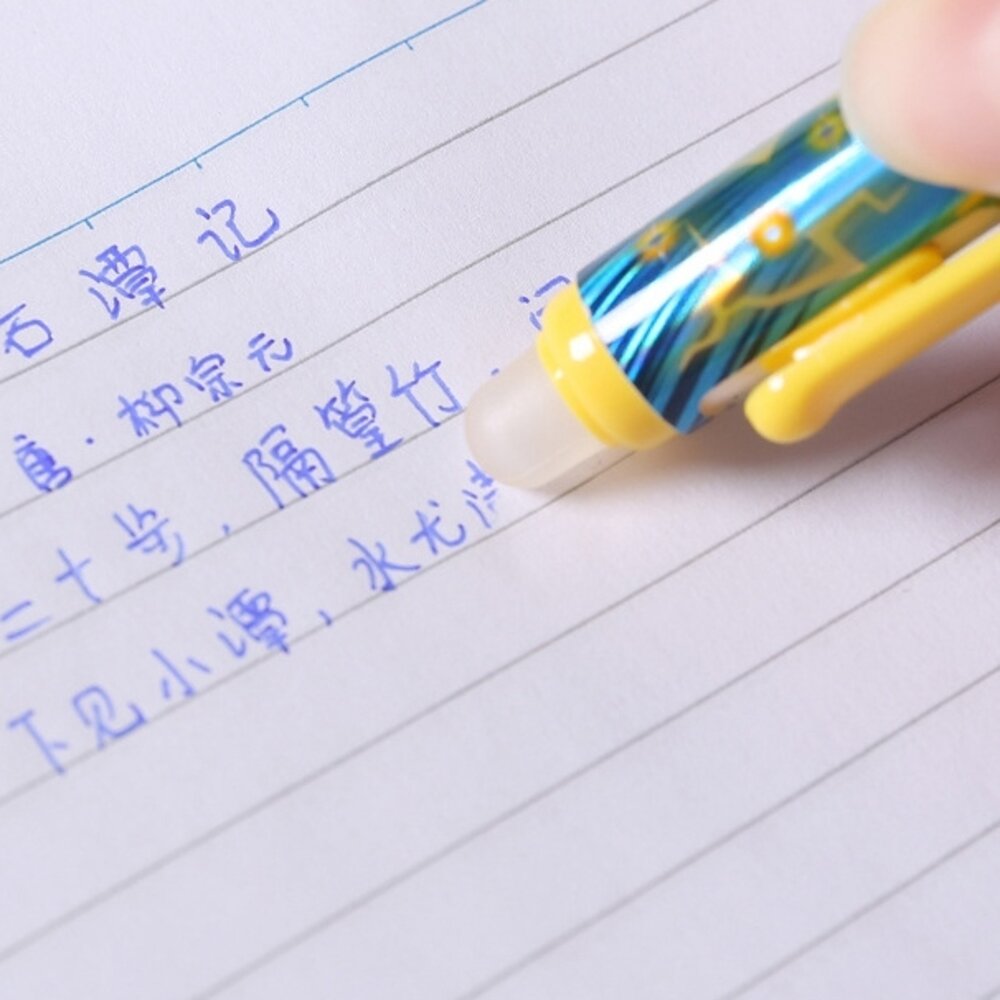 石潭记
唐·柳宗元
二十步，隔篁竹，闻
下见小潭，水尤清